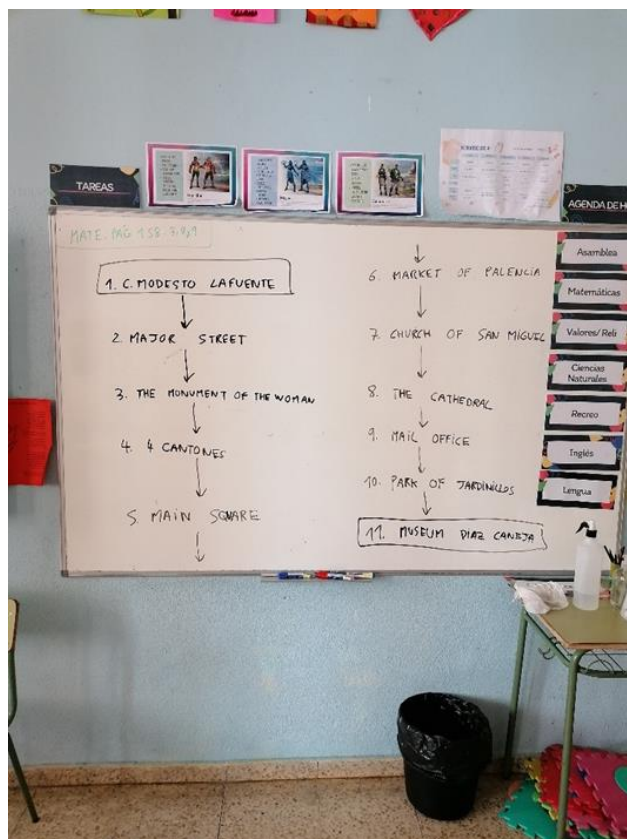 TAREAS
AGENDA DE H
MATE. PÁG 158.
1. C. MODESTO LAFUENTE
2. MAJOR STREET
3. THE MONUMENT OF THE WOMAN
4. 4 CANTONES
5. MAIN SQUARE
6. MARKET OF PALENCIA
7. CHURCH OF SAN MIGUEL
8. THE CATHEDRAL
9. MAIL OFFICE
10. PARK OF JARDINILLOS
11. MUSEUM DIAZ CANEJA
Asamblea
Matemáticas
Valores/Reli
Ciencias
Naturales
Recreo
Inglés
Lengua